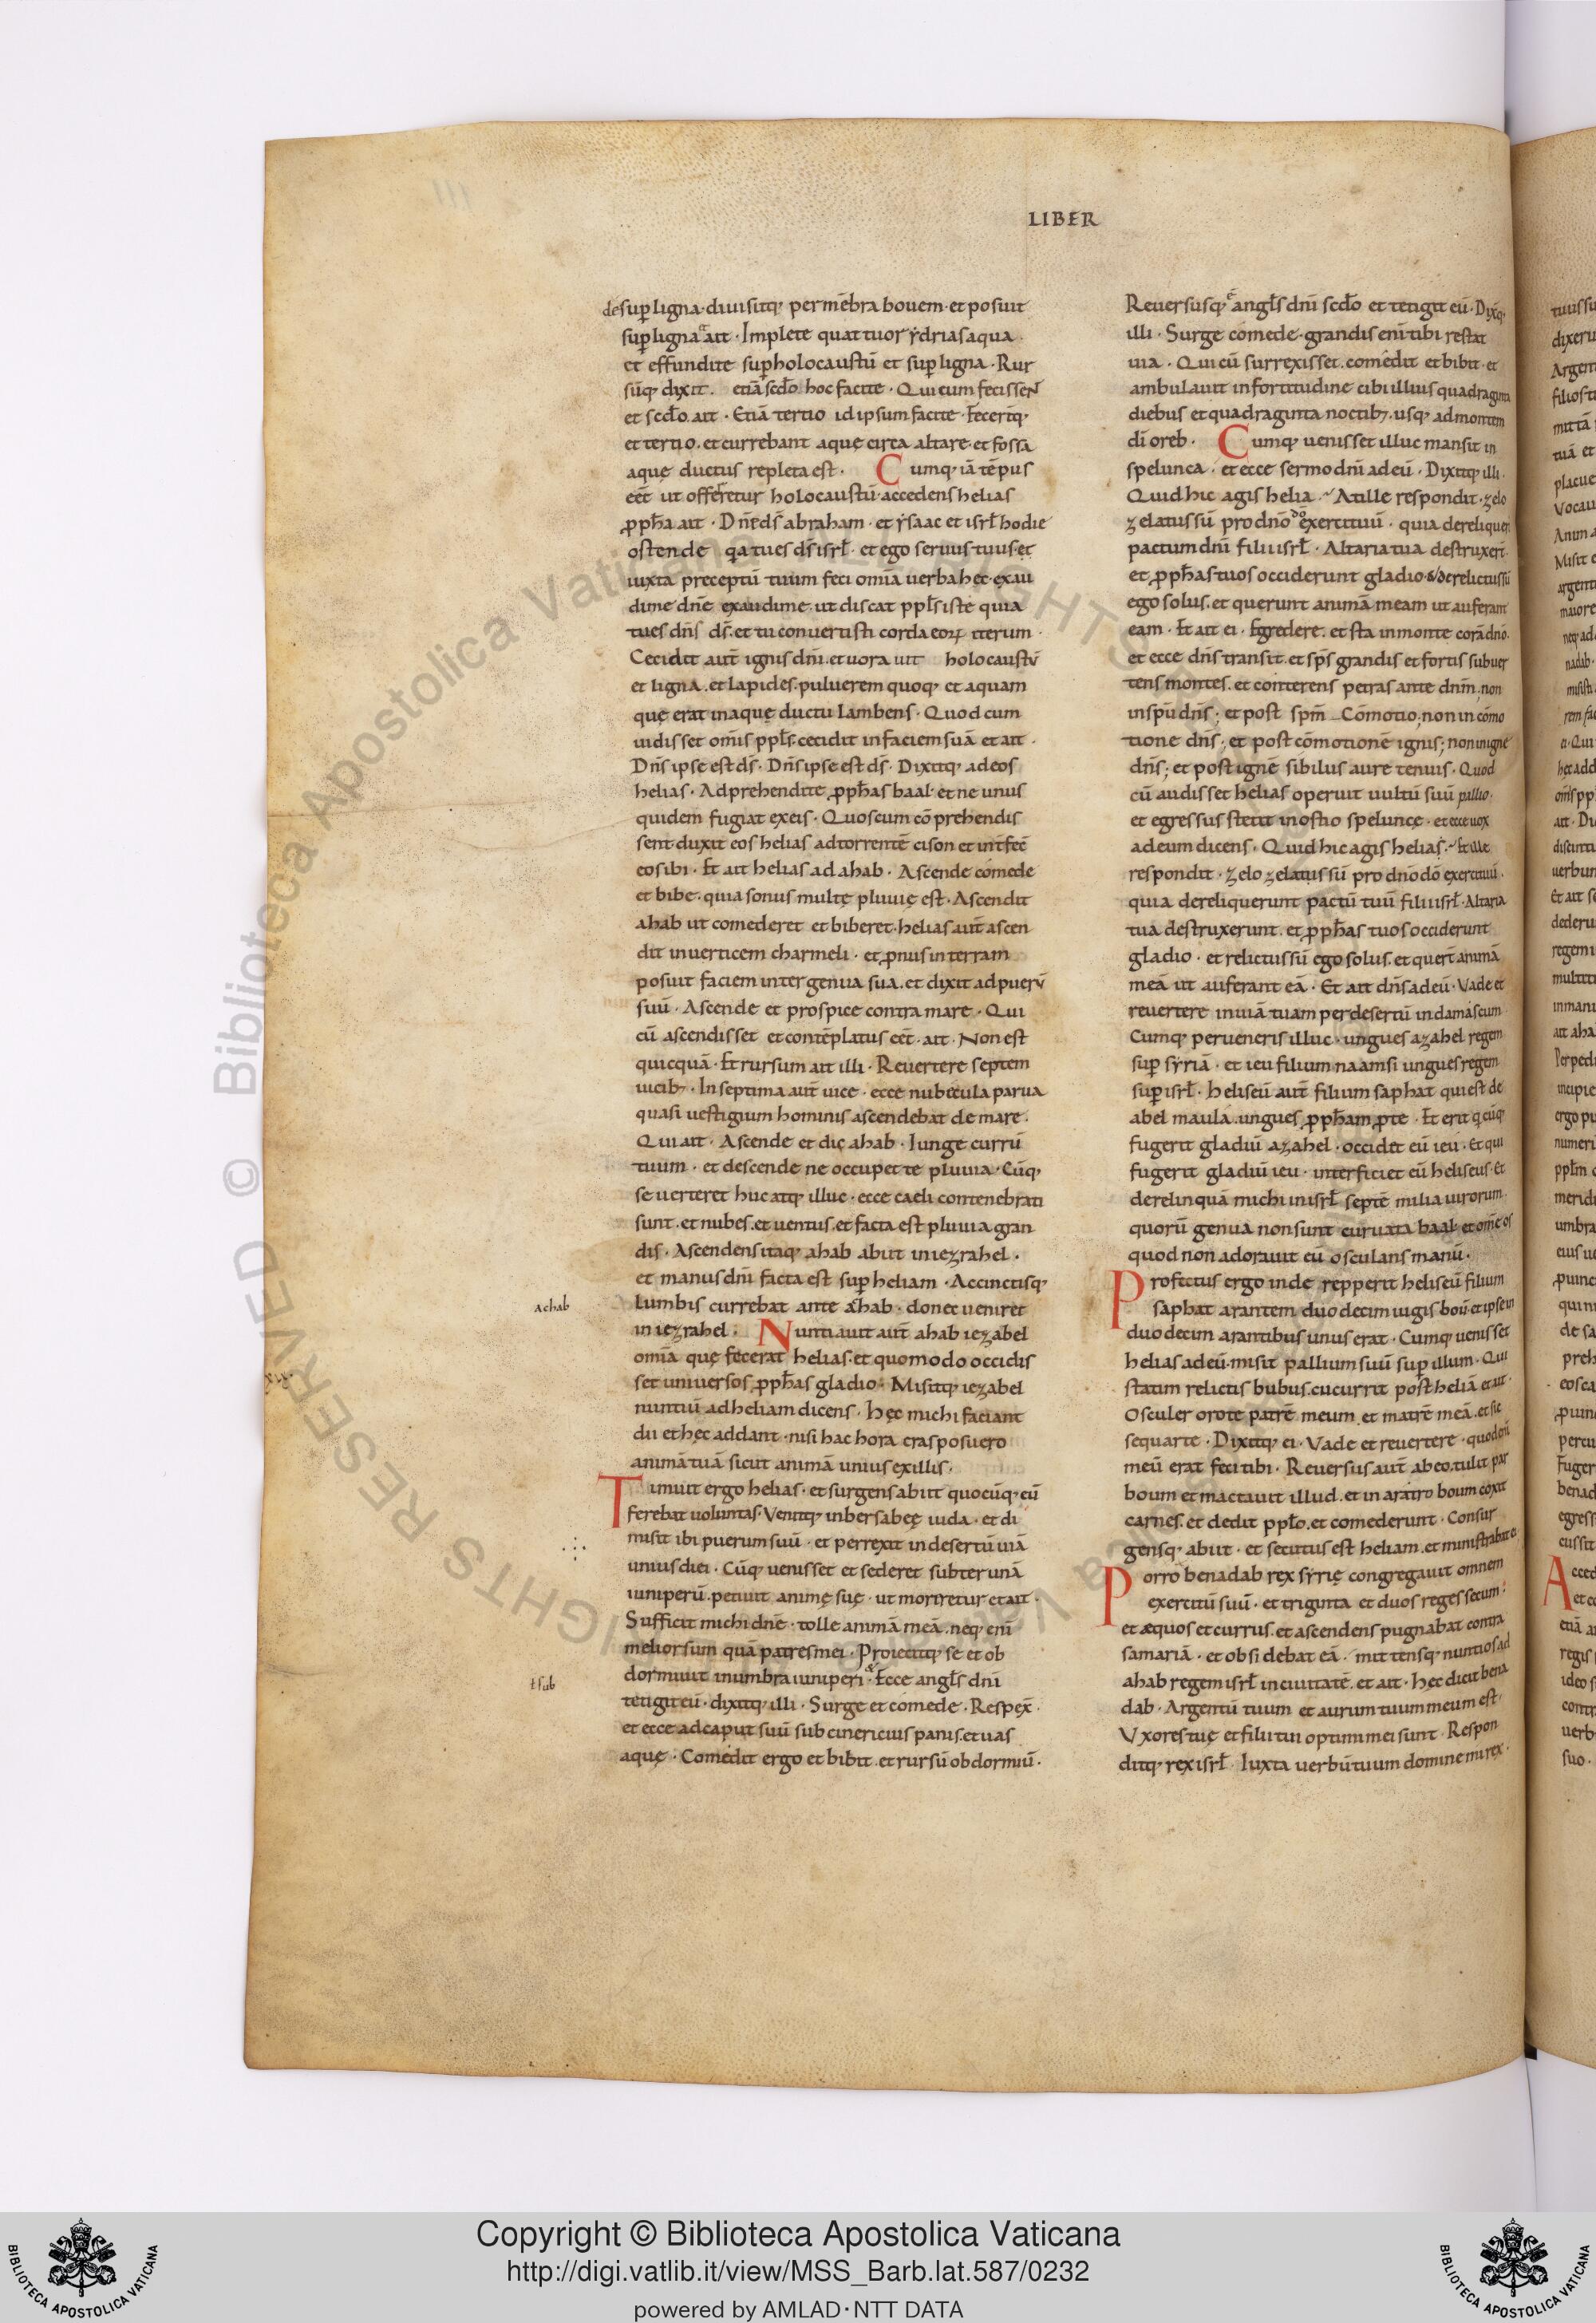 LIBER
desup ligna· diuisitq; per mēbra bouem· et posuit
sup ligna & ait· Implete quattuor ydrias aqua
et effundite sup holocaustū et sup ligna· Rur
sūq; dixit. etiā scdo hoc facite· Qui cum fecissent
et scdo. ait· Etiā tertio id ipsum facite· Fecertq;
et tertio. et currebant aquę circa altare· et fossa
aquę ductus repleta est. Cumq; iā tēpus
eēt ut offerretur holocaustū· accedens helias
ppha ait· Dnē ds̄ abraham· et ysaac et isrl̄ hodie
ostende qa tu es ds̄ isrl̄· et ego seruus tuus· et
iuxta preceptū tuum feci omīa uerba hec· exau
di me dnē exaudi me. ut discat ppl̄s iste quia
tu es dn̄s ds̄. et tu conuertisti corda eorꝝ iterum·
Cecidit aut̄ ignis dn̄i. et uorauit holocaustū
et ligna. et lapides. puluerem quoq; et aquam
quę erat in aquę ductu lambens· Quod cum
uidisset omīs ppl̄s. cecidit in faciem suā et ait·
Dn̄s ipse est ds̄· Dn̄s ipse est ds̄· Dixitq; ad eos
helias· Adprehendite pphas baal· et ne unus
quidem fugiat ex eis· Quos cum cōprehendis
sent duxit eos helias ad torrentē cison et int̄fec̄
eos ibi· Et ait helias ad ahab· Ascende comede
et bibe· quia sonus multę pluuię est· Ascendit
ahab ut comederet et biberet· helias aut̄ ascen
dit in uerticem charmeli· et pnus in terram
posuit faciem inter genua sua. et dixit ad puerū
suū· Ascende et prospice contra mare· Qui
cū ascendisset et contēplatus eēt· ait· Non est
quicquā· Et rursum ait illi· Reuertere septem
uicib;· In septima aut̄ uice· ecce nubecula parua
quasi uestigium hominis ascendebat de mare·
Qui ait· Ascende et dic ahab· Iunge currū
tuum· et descende ne occupet te pluuia· Cūq;
se uerteret huc atq; illuc· ecce caeli contenebrati
sunt. et nubes. et uentus. et facta est pluuia gran
dis· Ascendens itaq; ahab abiit in iezrahel·
et manus dn̄i facta est sup heliam· Accinctisq;
achab
lumbis currebat ante ahab· donec ueniret
in iezrahel· Nuntiauit aut̄ ahab iezabel
omīa quę fecerat helias· et quomodo occidis
set uniuersos pphas gladio· Misitq; iezabel
nuntiū ad heliam dicens· Hęc michi faciant
dii et hęc addant· nisi hac hora cras posuero
animā tuā sicut animā unius ex illis·
Timuit ergo helias· et surgens abiit quocūq; eū
ferebat uoluntas· Venitq; in bersabeę iuda· et di
misit ibi puerum suū· et perrexit in desertū uiā
unius diei· Cūq; uenisset et sederet subter unā
iuniperū. petiuit animę suę· ut moriretur et ait·
Sufficit michi dnē· tolle animā meā. neq; enī
melior sum quā patres mei· Proiecitq; se et ob
dormiuit in umbra iuniperi· & Ecce angl̄s dn̄i
ł sub
tetigit eū· dixitq; illi· Surge et comede· Respex̄·
et ecce ad caput suū subcinericius panis. et uas
aquę· Comedit ergo et bibit. et rursū obdormiū·
Reuersusq; ē angl̄s dn̄i scdo et tetigit eū· Dixq;
illi· Surge comede· grandis enī tibi restat
uia· Qui cū surrexisset. comedit et bibit· et
ambulauit in fortitudine cibi illius quadraginta
diebus et quadraginta noctib;. usq; ad montem
dī oreb· Cumq; uenisset illuc mansit in
spelunca· et ecce sermo dn̄i ad eū· Dixitq; illi·
Quid hic agis helia· At ille respondit· zelo
zelatus sū pro dn̄o dō exercituū· quia dereliquer̄
pactum dn̄i filii isrl̄· Altaria tua destruxer̄t·
et pphas tuos occiderunt gladio· & derelictus sū
ego solus. et querunt animā meam ut auferant
eam· Et ait ei· Egredere. et sta in monte corā dn̄o·
et ecce dn̄s transit. et sp̄s grandis et fortis subuer
tens montes. et conterens petras ante dnm̄. non
in sp̄u dn̄s; et post spm̄ Cōmotio; non in cōmo
tione dn̄s; et post cōmotionē ignis; non in igne
dn̄s; et post ignē sibilus aure tenuis· Quod
cū audisset helias operuit uultū suū pallio·
et egressus stetit in ostio speluncę· et ecce uox
ad eum dicens· Quid hic agis helias· Et ille
respondit· zelo zelatus sū pro dn̄o dō exercituū·
quia dereliquerunt pactū tuū filii isrl̄· Altaria
tua destruxerunt. et pphas tuos occiderunt
gladio· et relictus sū ego solus. et quer̄t animā
meā ut auferant eā· Et ait dn̄s ad eū· Vade et
reuertere in uiā tuam per desertū in damascum
Cumq; perueneris illuc· ungues azahel regem
sup syriā· et ieu filium naamsi ungues regem
sup isrl̄· heliseū aut̄ filium saphat qui est de
abel maula. ungues ppham p te· Et erit q̄cūq;
fugerit gladiū azahel· occidet eū ieu· Et qui
fugerit gladiū ieu· interficiet eū heliseus· Et
derelinquā michi in isrl̄ septē milia uirorum
quorū genua non sunt curuata baal· et om̄e os
quod non adorauit eū osculans manū·
Profectus ergo inde repperit heliseū filium
saphat arantem duodecim iugis boū· et ipse in
duodecim arantibus unus erat· Cumq; uenisset
helias ad eū. misit pallium suū sup illum· Qui
statim relictis bubus. cucurrit post heliā et ait·
Osculer oro te patrē meum et matrē meā. et sic
sequar te· Dixitq; ei· Vade et reuertere· quod enī
meū erat feci tibi· Reuersus aut̄ ab eo. tulit par
boum et mactauit illud. et in aratro boum coxit
carnes. et dedit ppl̄o. et comederunt· Consur
gensq; abiit· et secutus est heliam. et ministrabat ei·
Porro benadab rex syrię congregauit omnem
exercitū suū· et triginta et duos reges secum·
et æquos et currus. et ascendens pugnabat contra
samariā· et obsidebat eā· mittensq; nuntios ad
ahab regem isrl̄ in ciuitatē. et ait· Hęc dicit bena
dab· Argentū tuum et aurum tuum meum est·
Vxores tuę et filii tui optimi mei sunt· Respon
ditq; rex isrl̄· Iuxta uerbū tuum domine mi rex·
Copyright © Biblioteca Apostolica Vaticana
http://digi.vatlib.it/view/MSS_Barb.lat.587/0232
powered by AMLAD·NTT DATA